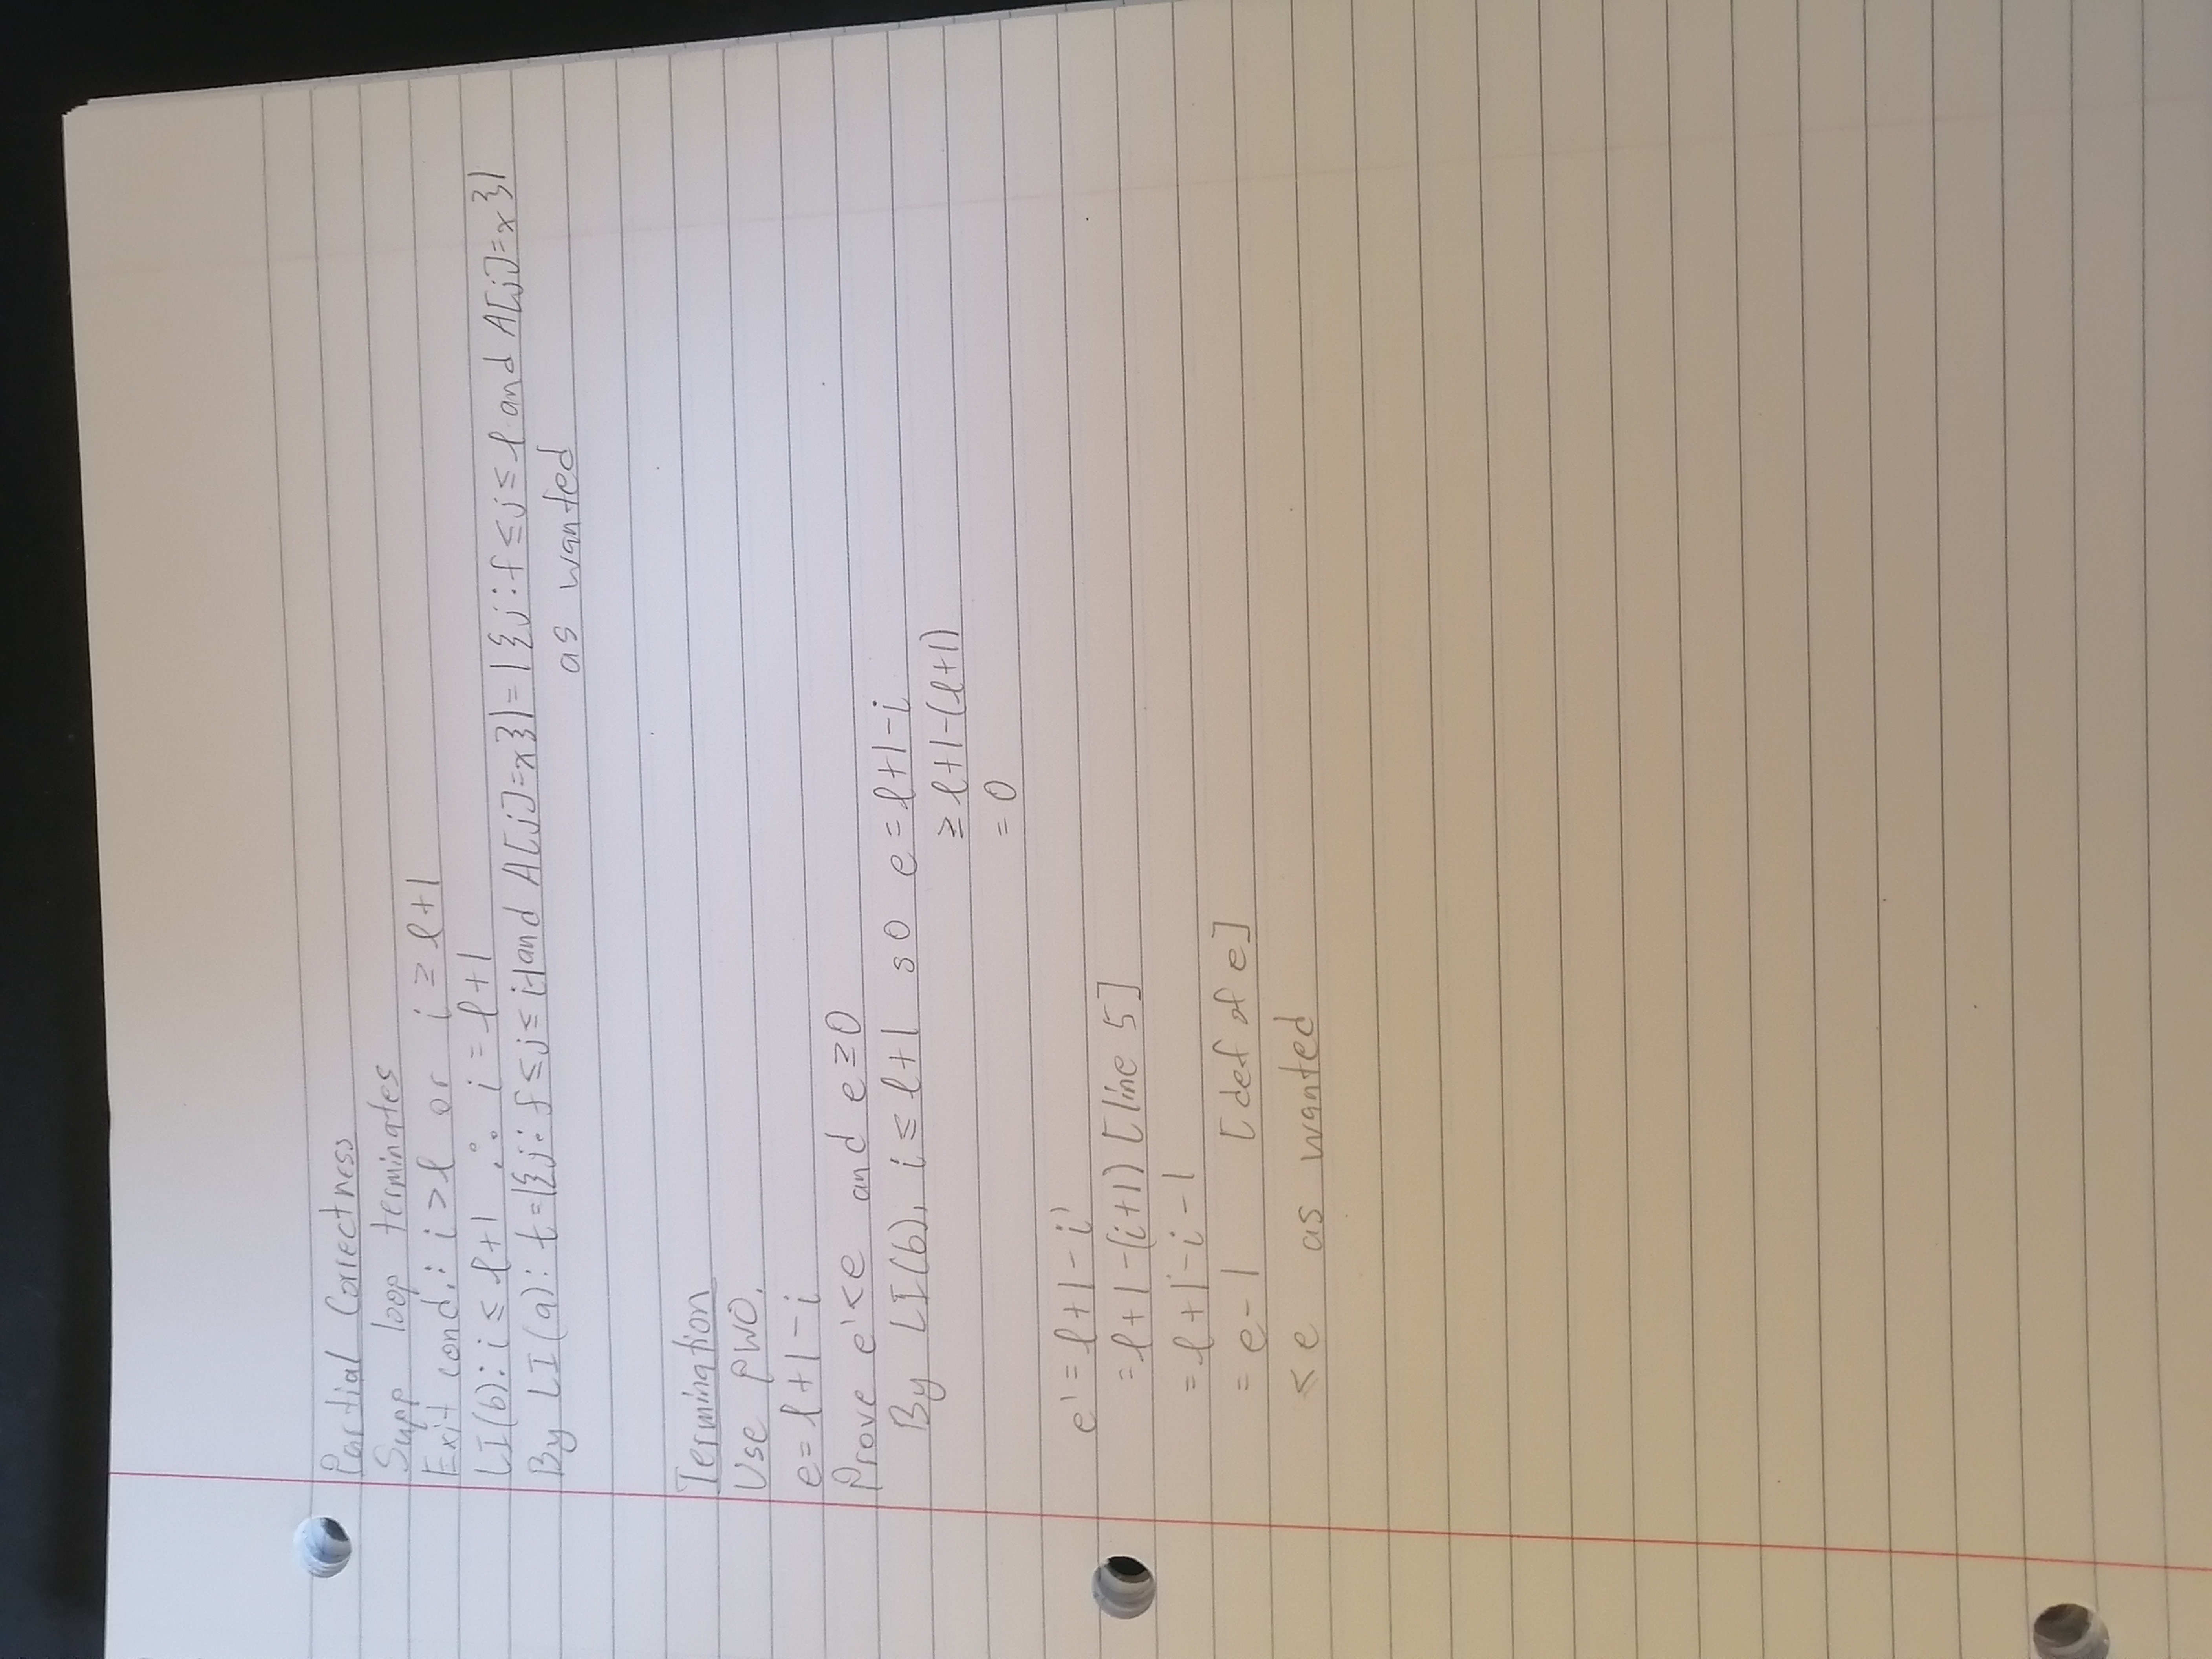 Partial Correctness
Supp loop terminates
Exit cond.: i > l or i ≥ l+1
LI(b): i ≤ l+1 ∴ i = l+1
By LI(a): t = |{j : f ≤ j ≤ i-1 and A[j]=x}| = |{j : f ≤ j ≤ l and A[j]=x}|
as wanted
Termination
Use PWO.
e = l+1-i
Prove e' < e and e ≥ 0
By LI(b), i ≤ l+1 so e = l+1-i
≥ l+1-(l+1)
= 0
e' = l+1-i'
= l+1-(i+1) [line 5]
= l+1-i-1
= e-1 [def of e]
< e as wanted